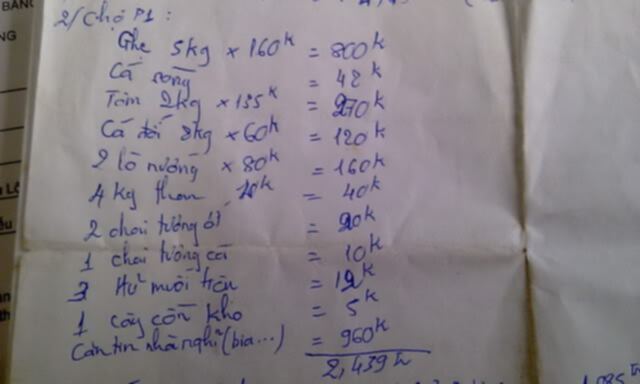 2/ Chợ P1 :
Ghẹ 5kg × 160k = 800k
Cá = 42k
Tôm 2kg × 135k = 270k
Cá đối 2kg × 60k = 120k
2 lò nướng × 80k = 160k
4 kg than 10k = 40k
2 chai tương ớt = 20k
1 chai tương cà = 10k
3 Hủ muối tiêu = 12k
1 cây cồn khô = 5k
Căn tin nhà nghỉ (bia...) = 960k
2,439k